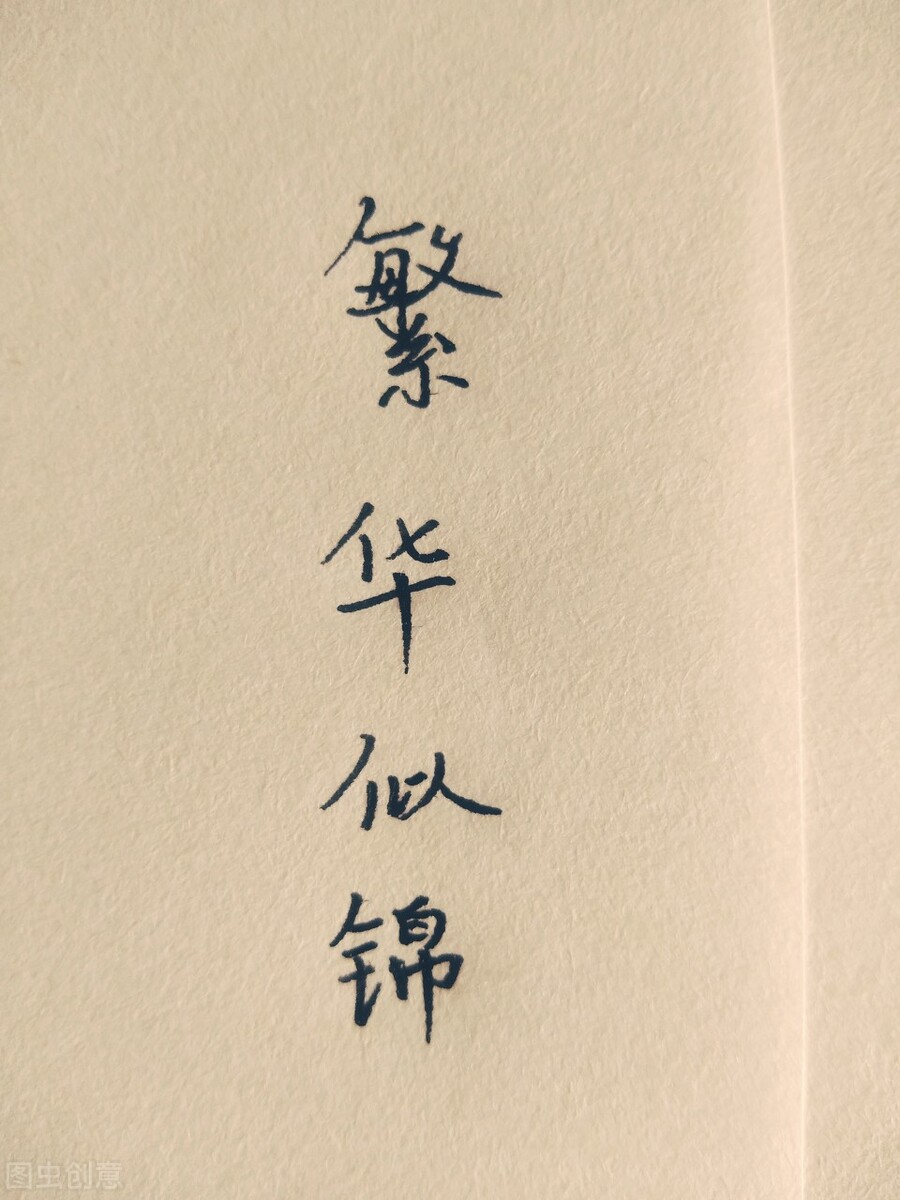 繁华似锦
图虫创意